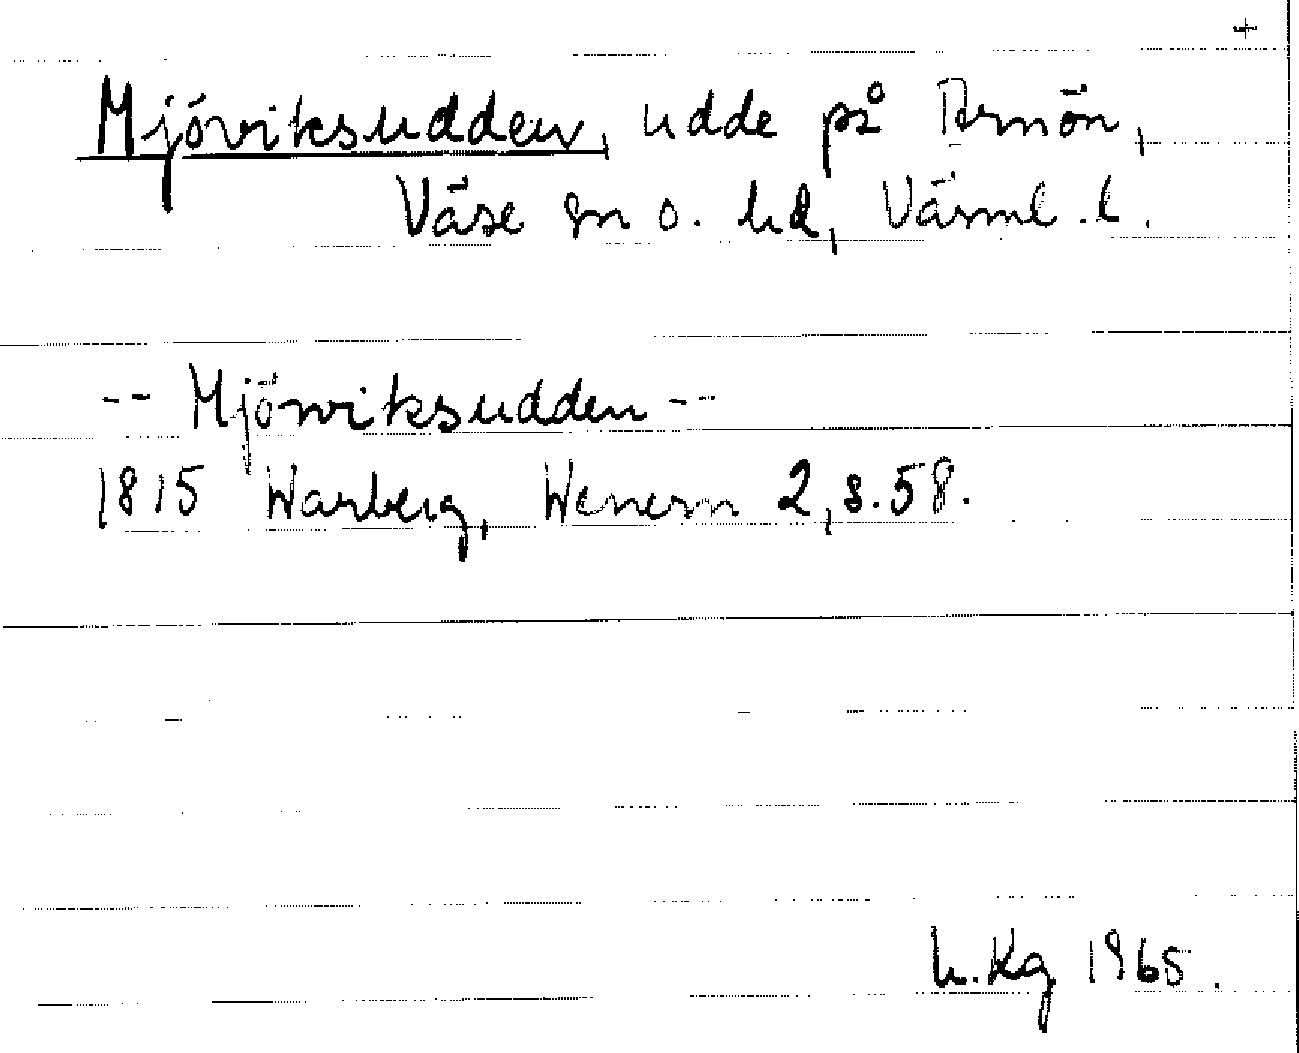 +
Mjöviksudden, udde på Arnön,
Väse sn o. hd, Värml. l.
-- Mjörviksudden --
1815 Warberg, Wenern 2, s. 58.
L. Kg 1965.